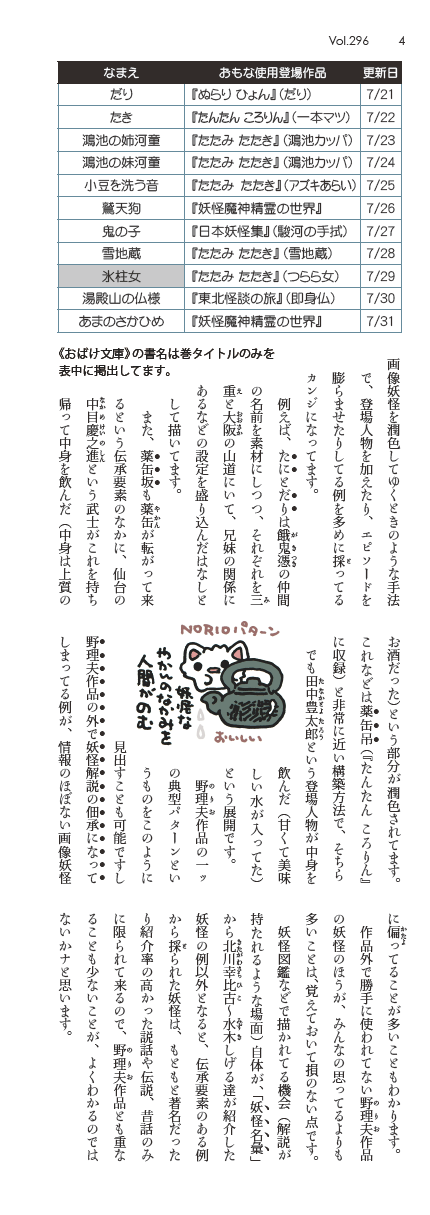 Vol.296 4
なまえ おもな使用登場作品 更新日
だり 『ぬらり ひょん』(だり) 7/21
たき 『たんたん ころりん』(一本マツ) 7/22
鴻池の姉河童 『たたみ たたき』(鴻池カッパ) 7/23
鴻池の妹河童 『たたみ たたき』(鴻池カッパ) 7/24
小豆を洗う音 『たたみ たたき』(アズキあらい) 7/25
鷲天狗 『妖怪魔神精霊の世界』 7/26
鬼の子 『日本妖怪集』(駿河の手拭) 7/27
雪地蔵 『たたみ たたき』(雪地蔵) 7/28
氷柱女 『たたみ たたき』(つらら女) 7/29
湯殿山の仏様 『東北怪談の旅』(即身仏) 7/30
あまのさかひめ 『妖怪魔神精霊の世界』 7/31
《おばけ文庫》の書名は巻タイトルのみを
表中に掲出してます。
画像妖怪を潤色してゆくときのような手法
で、登場人物を加えたり、エピソードを
膨らませたりしてる例を多めに採ってる
カンジになってます。
例えば、たにとだりは餓鬼憑の仲間
の名前を素材にしつつ、それぞれを三
重と大阪の山道にいて、兄妹の関係に
あるなどの設定を盛り込んだはなしと
して描いてます。
また、薬缶坂も薬缶が転がって来
るという伝承要素のなかに、仙台の
中目慶之進という武士がこれを持ち
帰って中身を飲んだ(中身は上質の
お酒だった)という部分が潤色されてます。
これなどは薬缶吊(『たんたん ころりん』
に収録)と非常に近い構築方法で、そちら
でも田中豊太郎という登場人物が中身を
飲んだ(甘くて美味
しい水が入ってた)
という展開です。
野理夫作品の一ッ
の典型パターンとい
うものをこのように
見出すことも可能ですし
野理夫作品の外で妖怪解説の佃承になって
しまってる例が、情報のほぼない画像妖怪
NORIOパターン
妖怪な
やかんのなかみを
人間がのむ
おいしい
に偏ってることが多いこともわかります。
作品外で勝手に使われてない野理夫作品
の妖怪のほうが、みんなの思ってるよりも
多いことは、覚えておいて損のない点です。
妖怪図鑑などで描かれてる機会(解説が
持たれるような場面)自体が、「妖怪名彙」
から北川幸比古〜水木しげる達が紹介した
妖怪の例以外となると、伝承要素のある例
から採られた妖怪は、もともと著名だった
り紹介率の高かった説話や伝説、昔話のみ
に限られて来るので、野理夫作品とも重な
ることも少ないことが、よくわかるのでは
ないかナと思います。